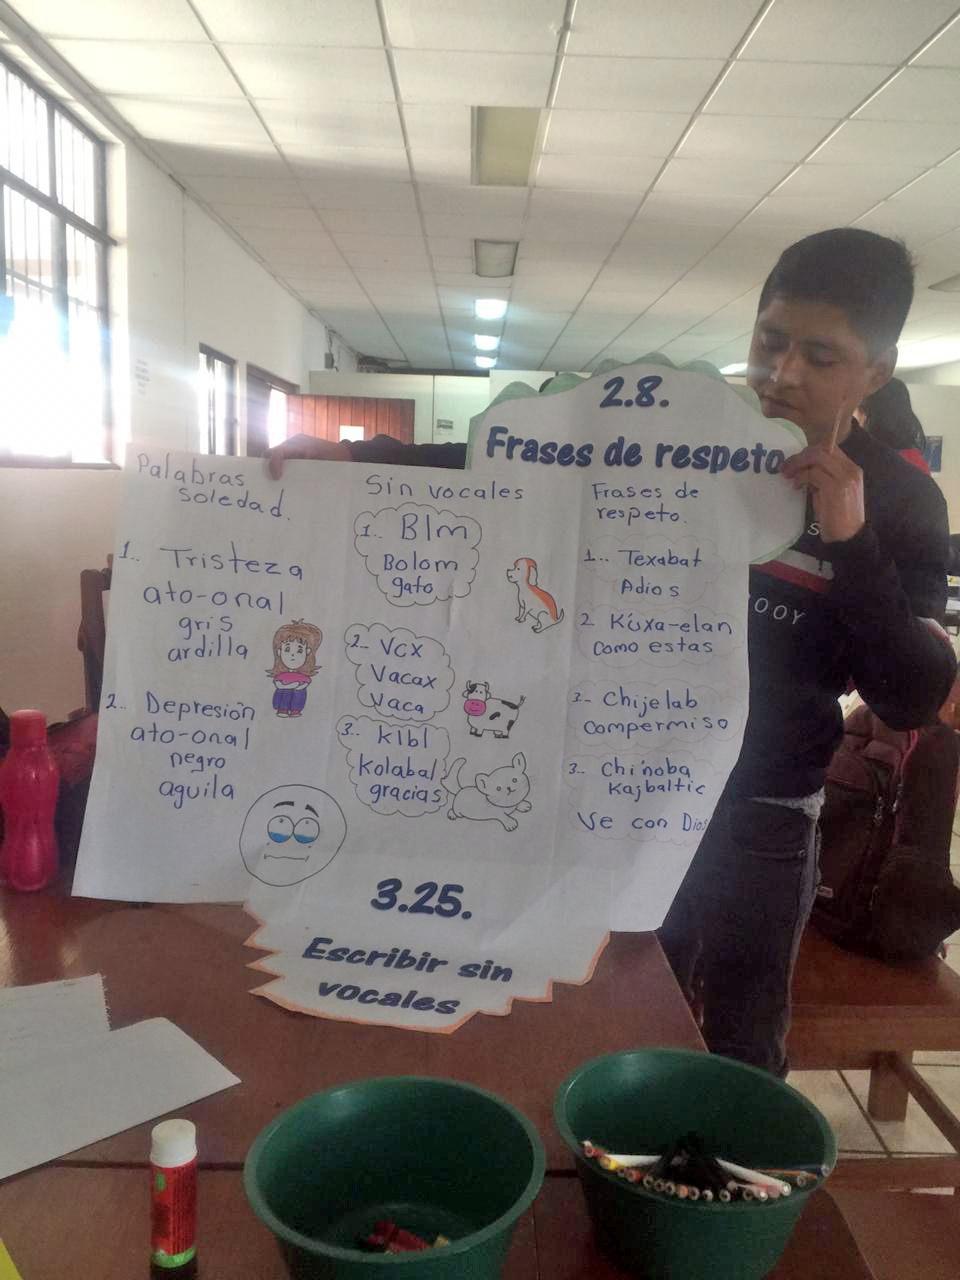 2.8.
Frases de respeto
Palabras
soledad.
1.. Tristeza
ato-onal
gris
ardilla
2.. Depresión
ato-onal
negro
aguila
Sin vocales
1.. Blm
Bolom
gato
2.. Vcx
Vacax
Vaca
3.. Klbl
Kolabal
gracias
Frases de
respeto.
1.. Texabat
Adios
2 Kúxa-elan
Como estas
3.. Chijelab
Compermiso
3.. Chi'noba
Kajbaltic
Ve con Dios
3.25.
Escribir sin
vocales
OOY